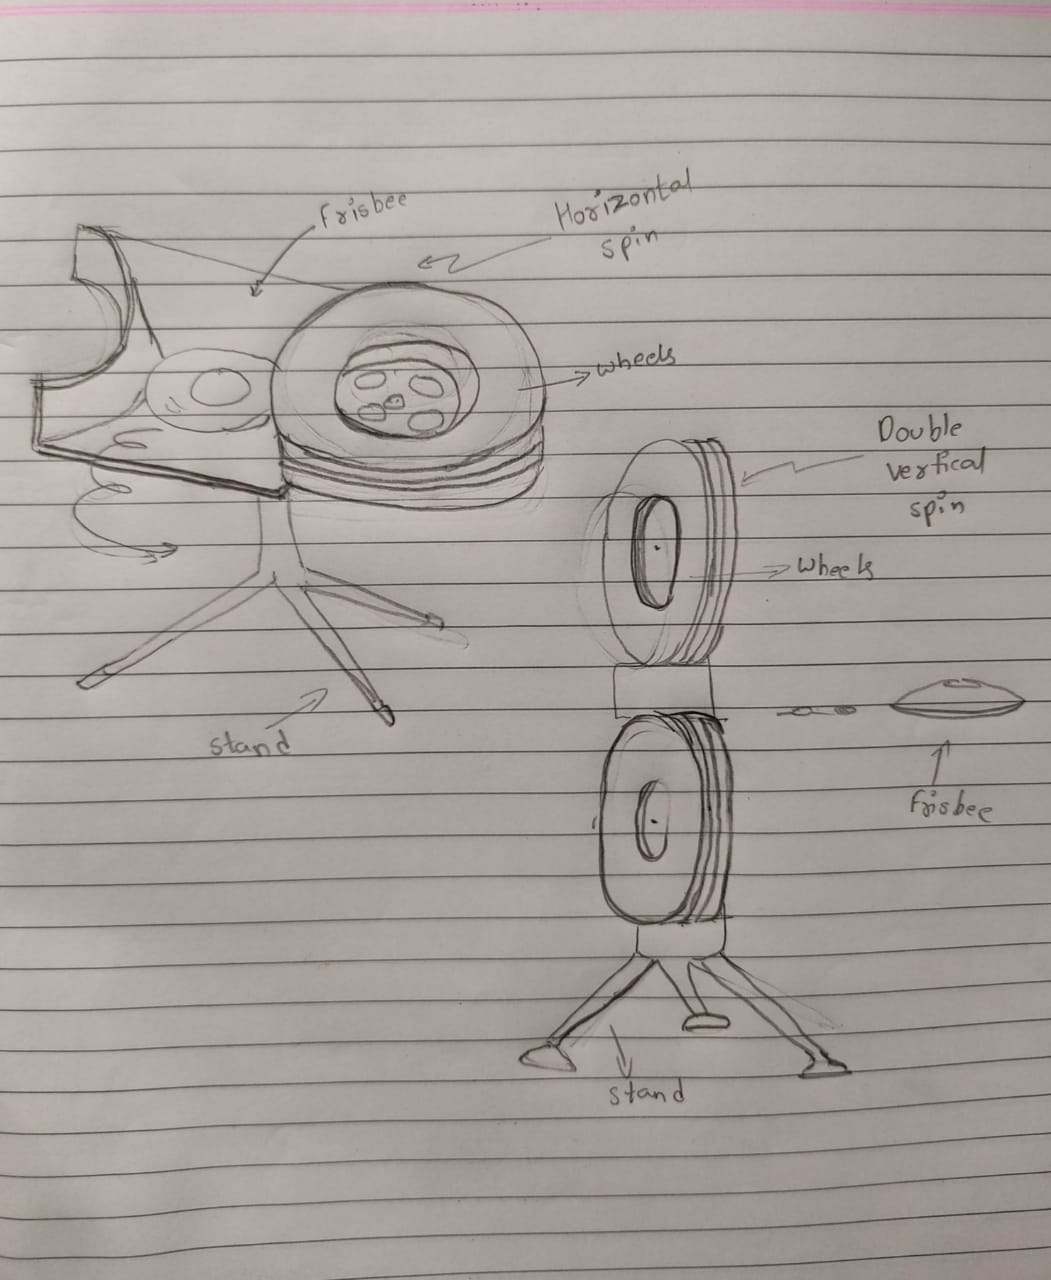 Frisbee
Horizontal
spin
wheels
Double
vertical
spin
Wheels
stand
Frisbee
stand